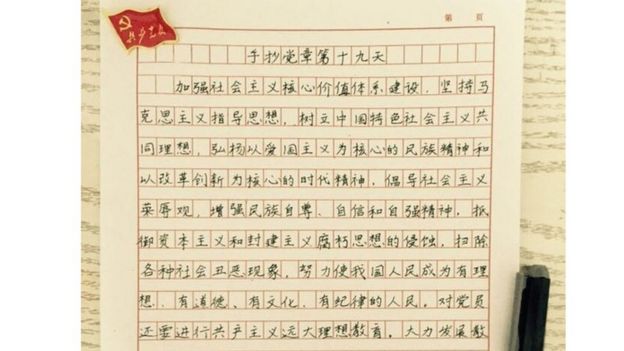 第 页
共产党员
手抄党章第十九天
加强社会主义核心价值体系建设，坚持马
克思主义指导思想，树立中国特色社会主义共
同理想，弘扬以爱国主义为核心的民族精神和
以改革创新为核心的时代精神，倡导社会主义
荣辱观，增强民族自尊、自信和自强精神，抵
御资本主义和封建主义腐朽思想的侵蚀，扫除
各种社会丑恶现象，努力使我国人民成为有理
想、有道德、有文化、有纪律的人民。对党员
还要进行共产主义远大理想教育。大力发展教